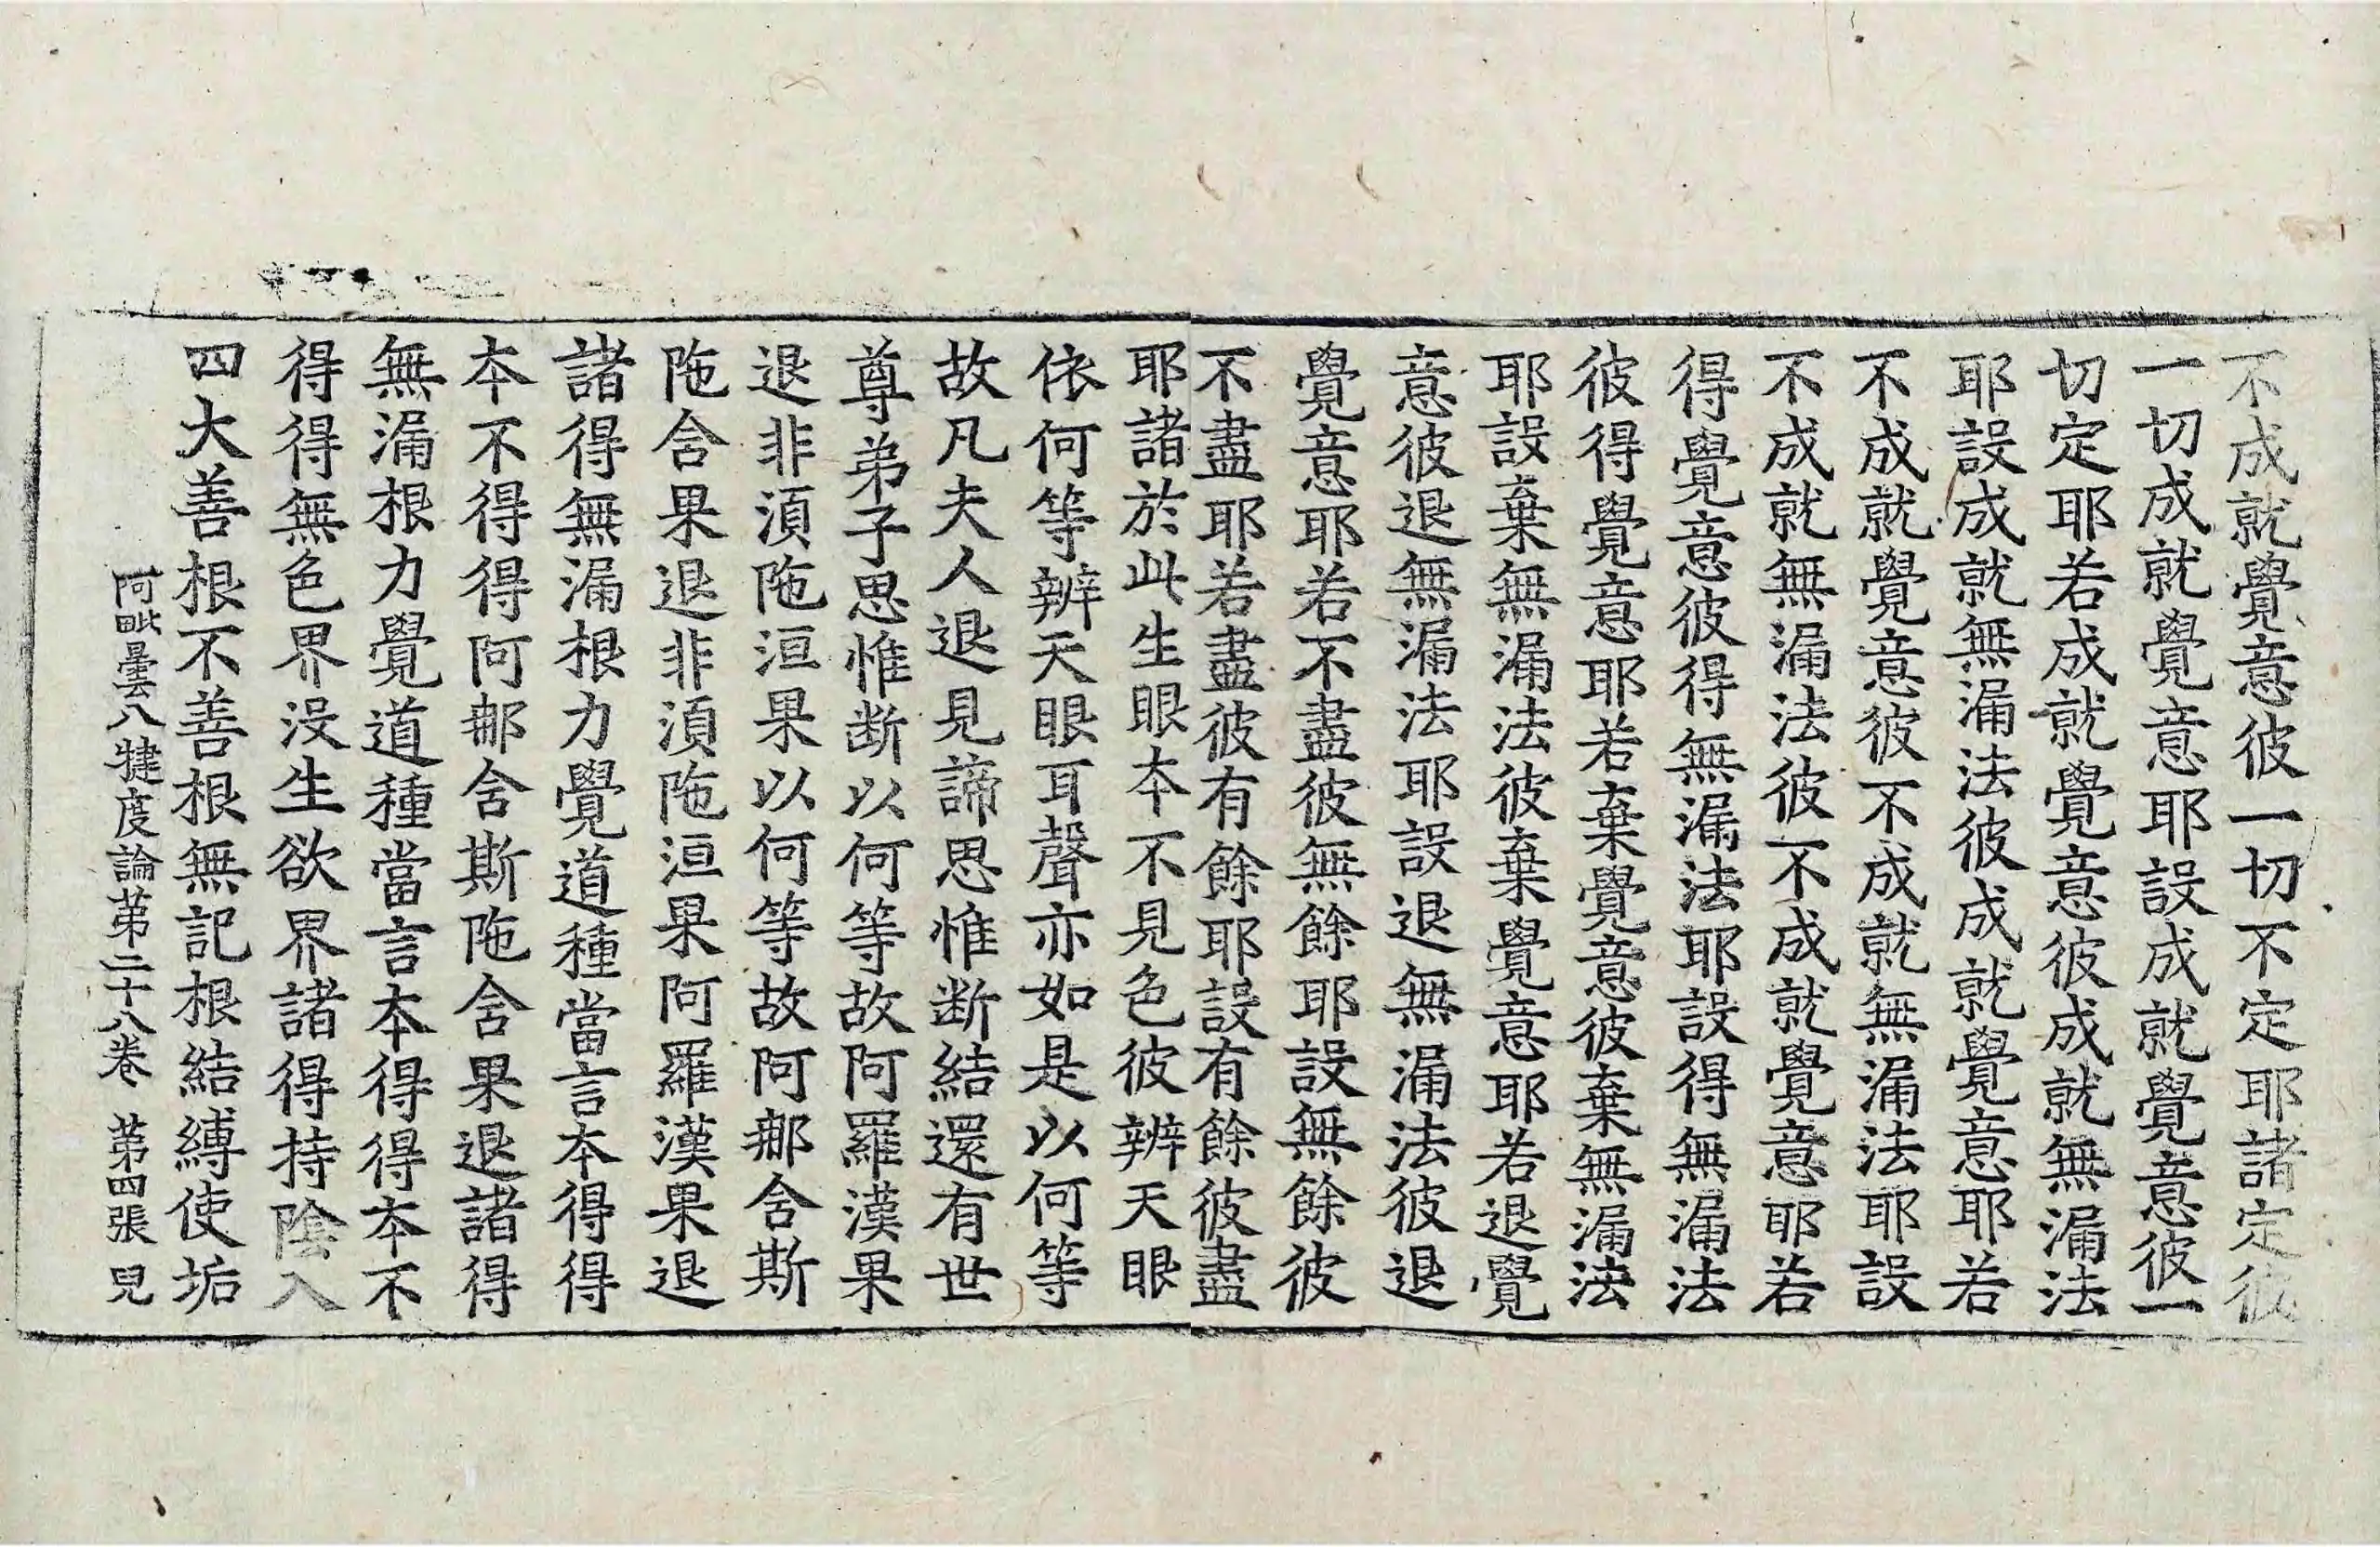 不成就覺意彼一切不定耶諸定彼
一切成就覺意耶設成就覺意彼一
切定耶若成就覺意彼成就無漏法
耶設成就無漏法彼成就覺意耶若
不成就覺意彼不成就無漏法耶設
不成就無漏法彼不成就覺意耶若
得覺意彼得無漏法耶設得無漏法
彼得覺意耶若棄覺意彼棄無漏法
耶設棄無漏法彼棄覺意耶若退覺
意彼退無漏法耶設退無漏法彼退
覺意耶若不盡彼無餘耶設無餘彼
不盡耶若盡彼有餘耶設有餘彼盡
耶諸於此生眼本不見色彼辨天眼
依何等辨天眼耳聲亦如是以何等
故凡夫人退見諦思惟断結還有世
尊弟子思惟断以何等故阿羅漢果
退非湏陁洹果以何等故阿那含斯
陁含果退非湏陁洹果阿羅漢果退
諸得無漏根力覺道種當言本得得
本不得得阿那含斯陁含果退諸得
無漏根力覺道種當言本得得本不
得得無色界没生欲界諸得持陰入
四大善根不善根無記根結縛使垢
阿毗曇八犍度論第二十八卷 第四張 皃